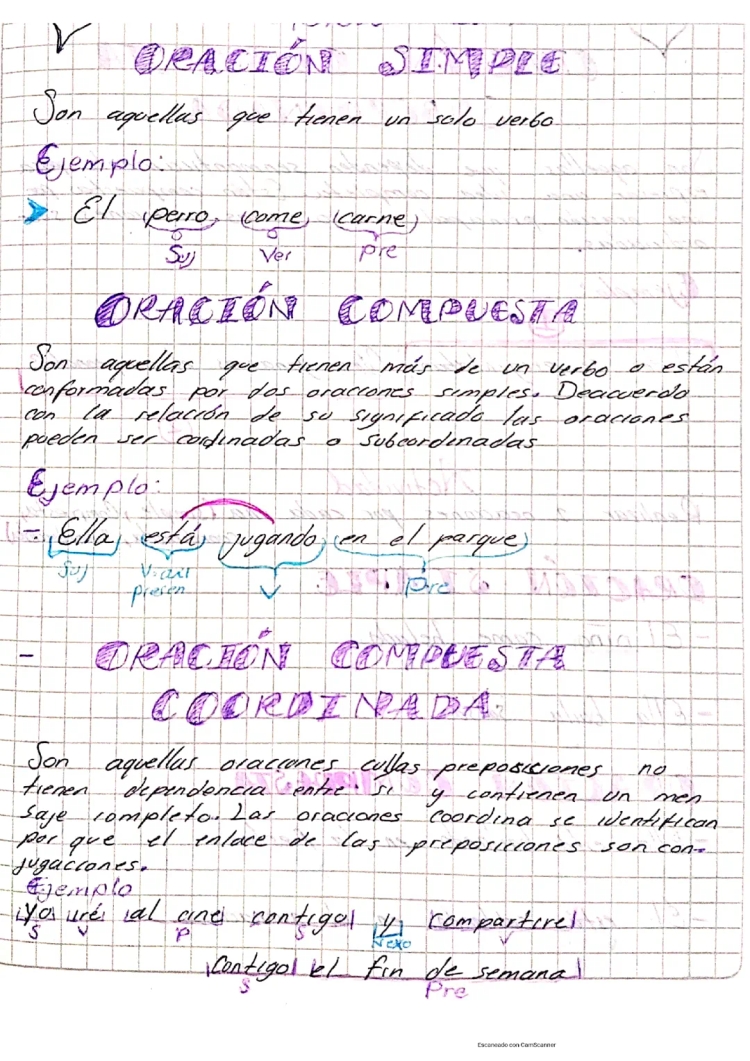 ORACIÓN SIMPLE
Son aquellas que tienen un solo verbo
Ejemplo:
➤ El perro come carne
Suj Ver Pre
ORACIÓN COMPUESTA
Son aquellas que tienen más de un verbo o están
conformadas por dos oraciones simples. Deacuerdo
con la relación de su significado las oraciones
pueden ser cordinadas o subcordinadas
Ejemplo:
- Ella está jugando en el parque
Suj V. aux V Pre
presen
- ORACIÓN COMPUESTA
COORDINADA
Son aquellas oraciones cullas preposiciones no
tienen dependencia entre si y contienen un men
saje completo. Las oraciones coordina se identifican
por que el enlace de las preposiciones son con-
jugaciones.
Ejemplo
Yo iré al cine contigo y compartirel
S V P S Nexo V
contigo el fin de semana
S Pre
Escaneado con CamScanner